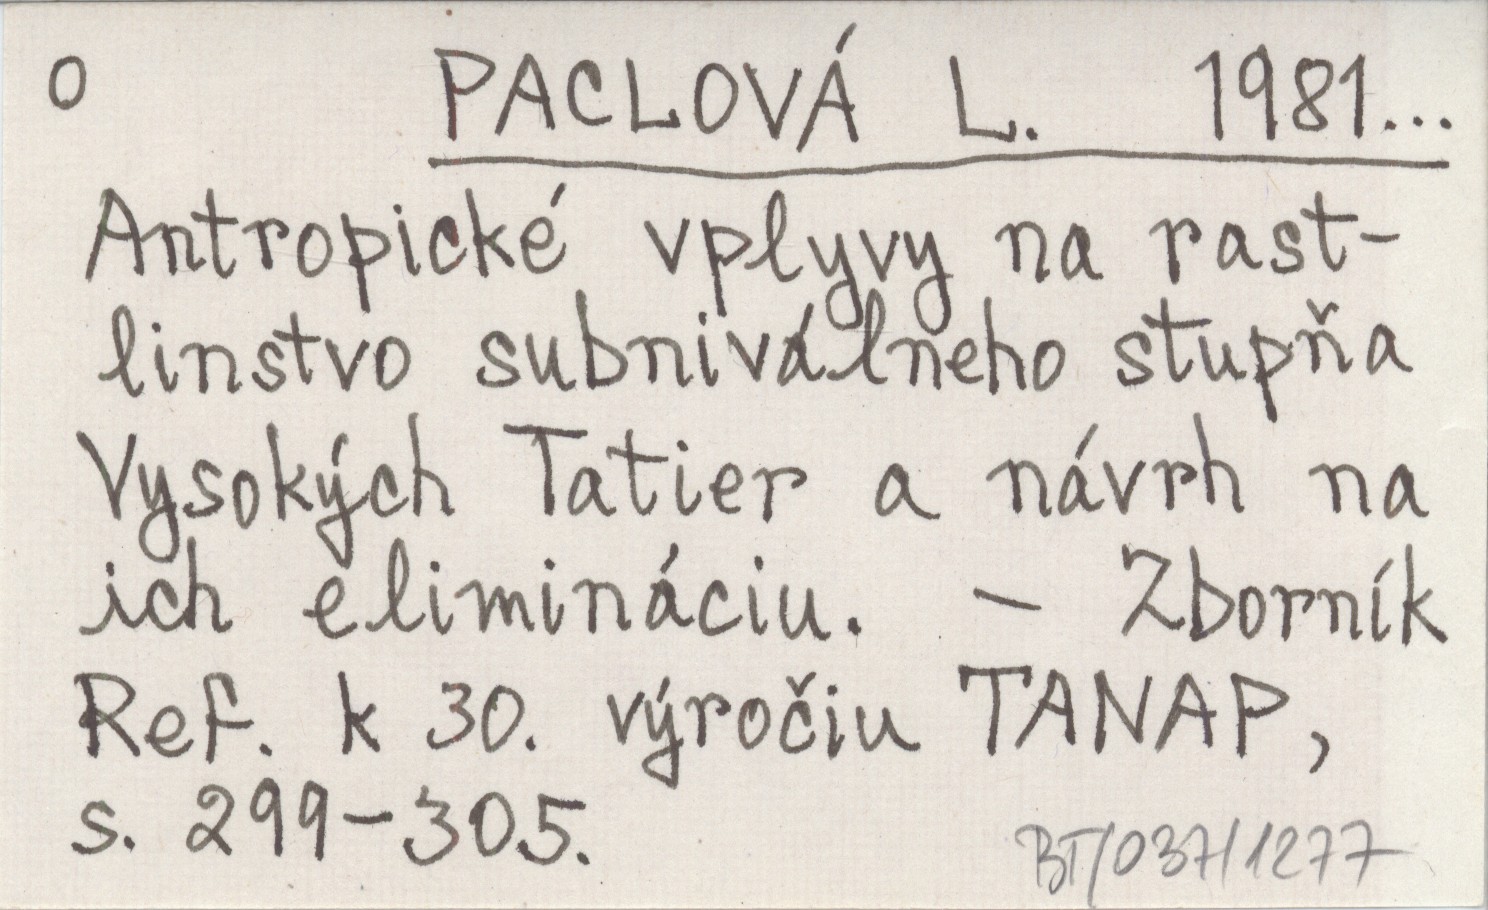 o PACLOVÁ L. 1981...
Antropické vplyvy na rast-
linstvo subniválneho stupňa
Vysokých Tatier a návrh na
ich elimináciu. – Zborník
Ref. k 30. výročiu TANAP,
s. 299-305.
BT/037/1277